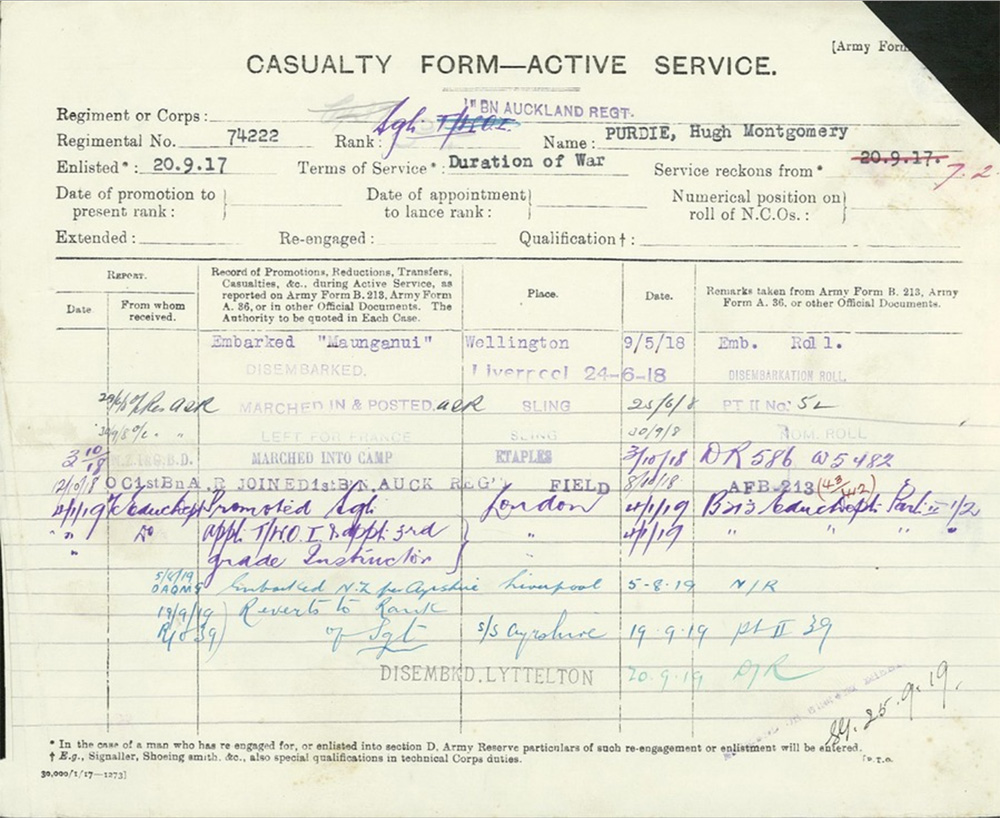 [Army Form
CASUALTY FORM—ACTIVE SERVICE.
Regiment or Corps: 1st BN AUCKLAND REGT.
Regimental No. 74222 Rank: Sgt. T/H.O.I. Name: PURDIE, Hugh Montgomery
Enlisted*: 20.9.17 Terms of Service*: Duration of War Service reckons from* 20.9.17. 7.2
Date of promotion to present rank: } Date of appointment to lance rank: } Numerical position on roll of N.C.Os.: }
Extended: Re-engaged: Qualification†:
REPORT. Date. From whom received.
Record of Promotions, Reductions, Transfers, Casualties, &c., during Active Service, as reported on Army Form B. 213, Army Form A. 36, or in other Official Documents. The Authority to be quoted in Each Case.
Place. Date. Remarks taken from Army Form B. 213, Army Form A. 36, or other Official Documents.
Embarked "Maunganui" Wellington 9/5/18 Emb. Roll.
DISEMBARKED. Liverpool 24-6-18 DISEMBARKATION ROLL.
MARCHED IN & POSTED. SLING PT II No. 52
LEFT FOR FRANCE SLING 30/9/8 NOM. ROLL
3/10/18 MARCHED INTO CAMP ETAPLES 3/10/18 DR 586 W5482
OC1stBnA.R JOINED1stB'N, AUCK REG'T FIELD 8/10/18 AFB.213 (43/442)
Promoted Sgt London B213 Educ Dept: Part II 1/2
Do appt. T/HO.I & appt. 3rd } " " " " "
" grade Instructor }
5/8/19 OAQMG Embarked N.Z. per Ayrshire Liverpool 5-8-19 N/R
19/9/19 Reverts to Rank
RO 39) of Sgt S/S Ayrshire 19-9-19 pt II 39
DISEMBKD. LYTTELTON 20.9.19 D/R
25.9.19.
* In the case of a man who has re-engaged for, or enlisted into section D. Army Reserve particulars of such re-engagement or enlistment will be entered.
† E.g., Signaller, Shoeing smith, &c., also special qualifications in technical Corps duties.
30,000/1/17—1273]
[P.T.O.